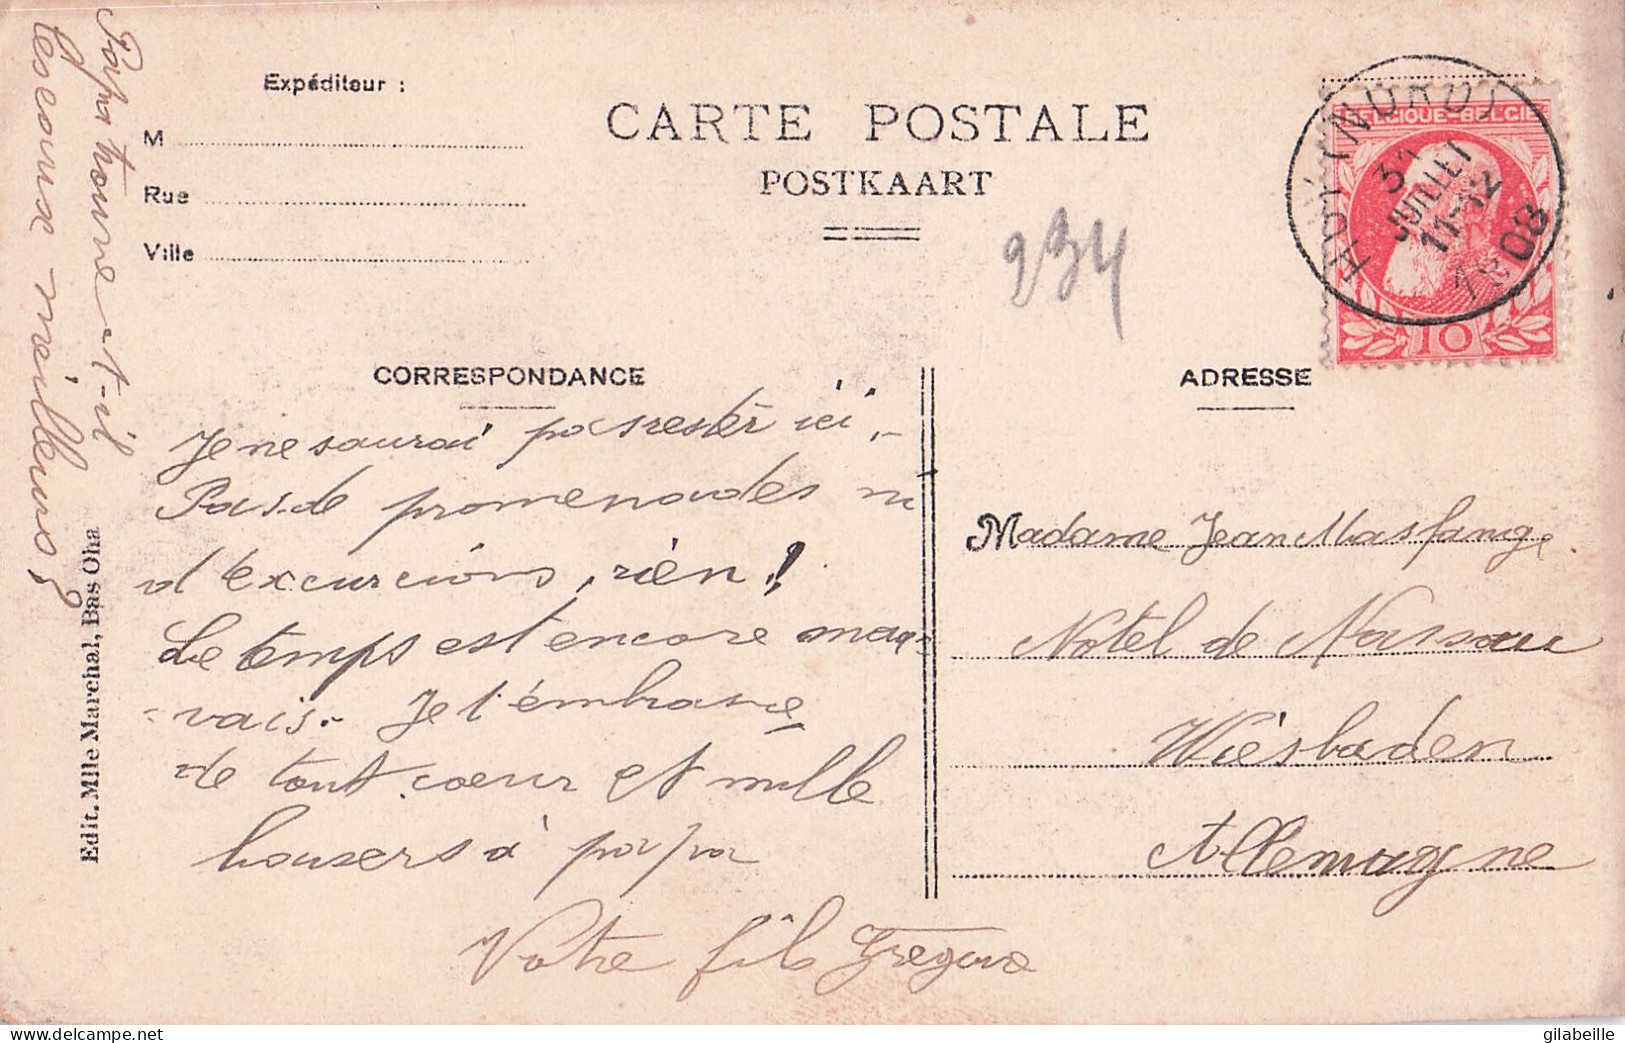 Papa trouve-t-il
les eaux meilleurs?
Expéditeur :
M
Rue
Ville
CARTE POSTALE
POSTKAART
234
BELGIQUE-BELGIE
10
HUY (NORD)
31
JUILLET
11-12
1908
CORRESPONDANCE
Je ne saurai pas rester ici,
Pas de promenades ni
d'excurcions, rien!
Le temps est encore mau-
vais. Je t'embrasse
de tout cœur et mille
bousers à papa
Votre fils
ADRESSE
Madame Jean
Hotel de Nassau
Wiesbaden
Allemagne
Edit. Mlle Marchal, Bas Oha
www.delcampe.net
gilabeille